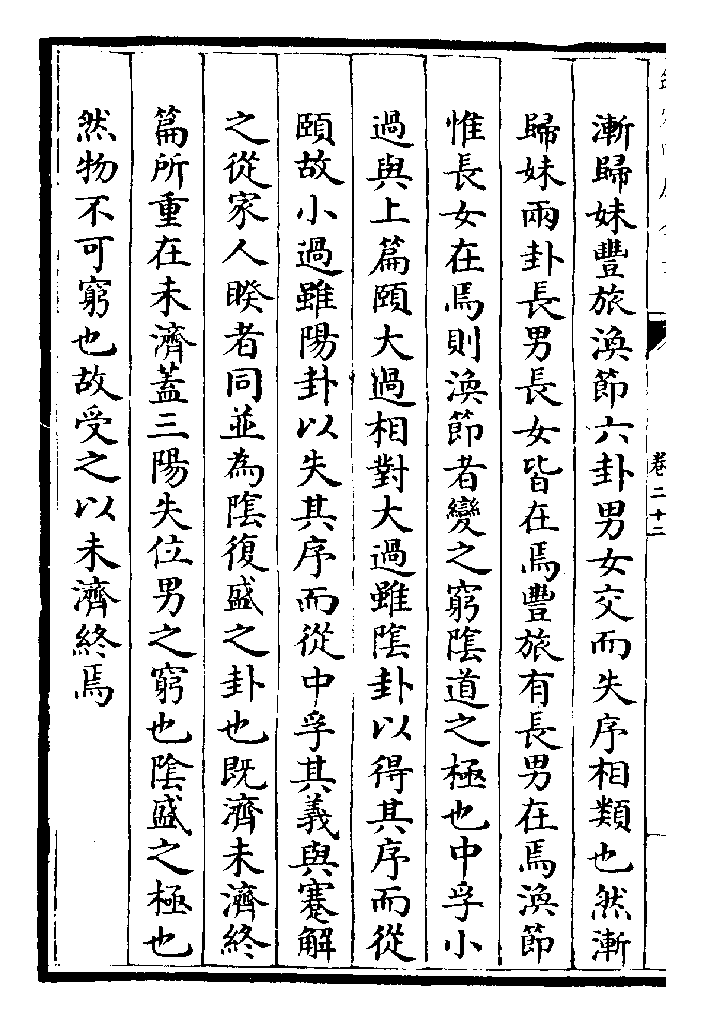 卷二十二
漸歸妹豐旅渙節六卦男女交而失序相類也然漸
歸妹兩卦長男長女皆在焉豐旅有長男在焉渙節
惟長女在焉則渙節者變之窮陰道之極也中孚小
過與上篇頤大過相對大過雖陰卦以得其序而從
頤故小過雖陽卦以失其序而從中孚其義與蹇解
之從家人睽者同並為陰復盛之卦也既濟未濟終
篇所重在未濟蓋三陽失位男之窮也陰盛之極也
然物不可窮也故受之以未濟終焉